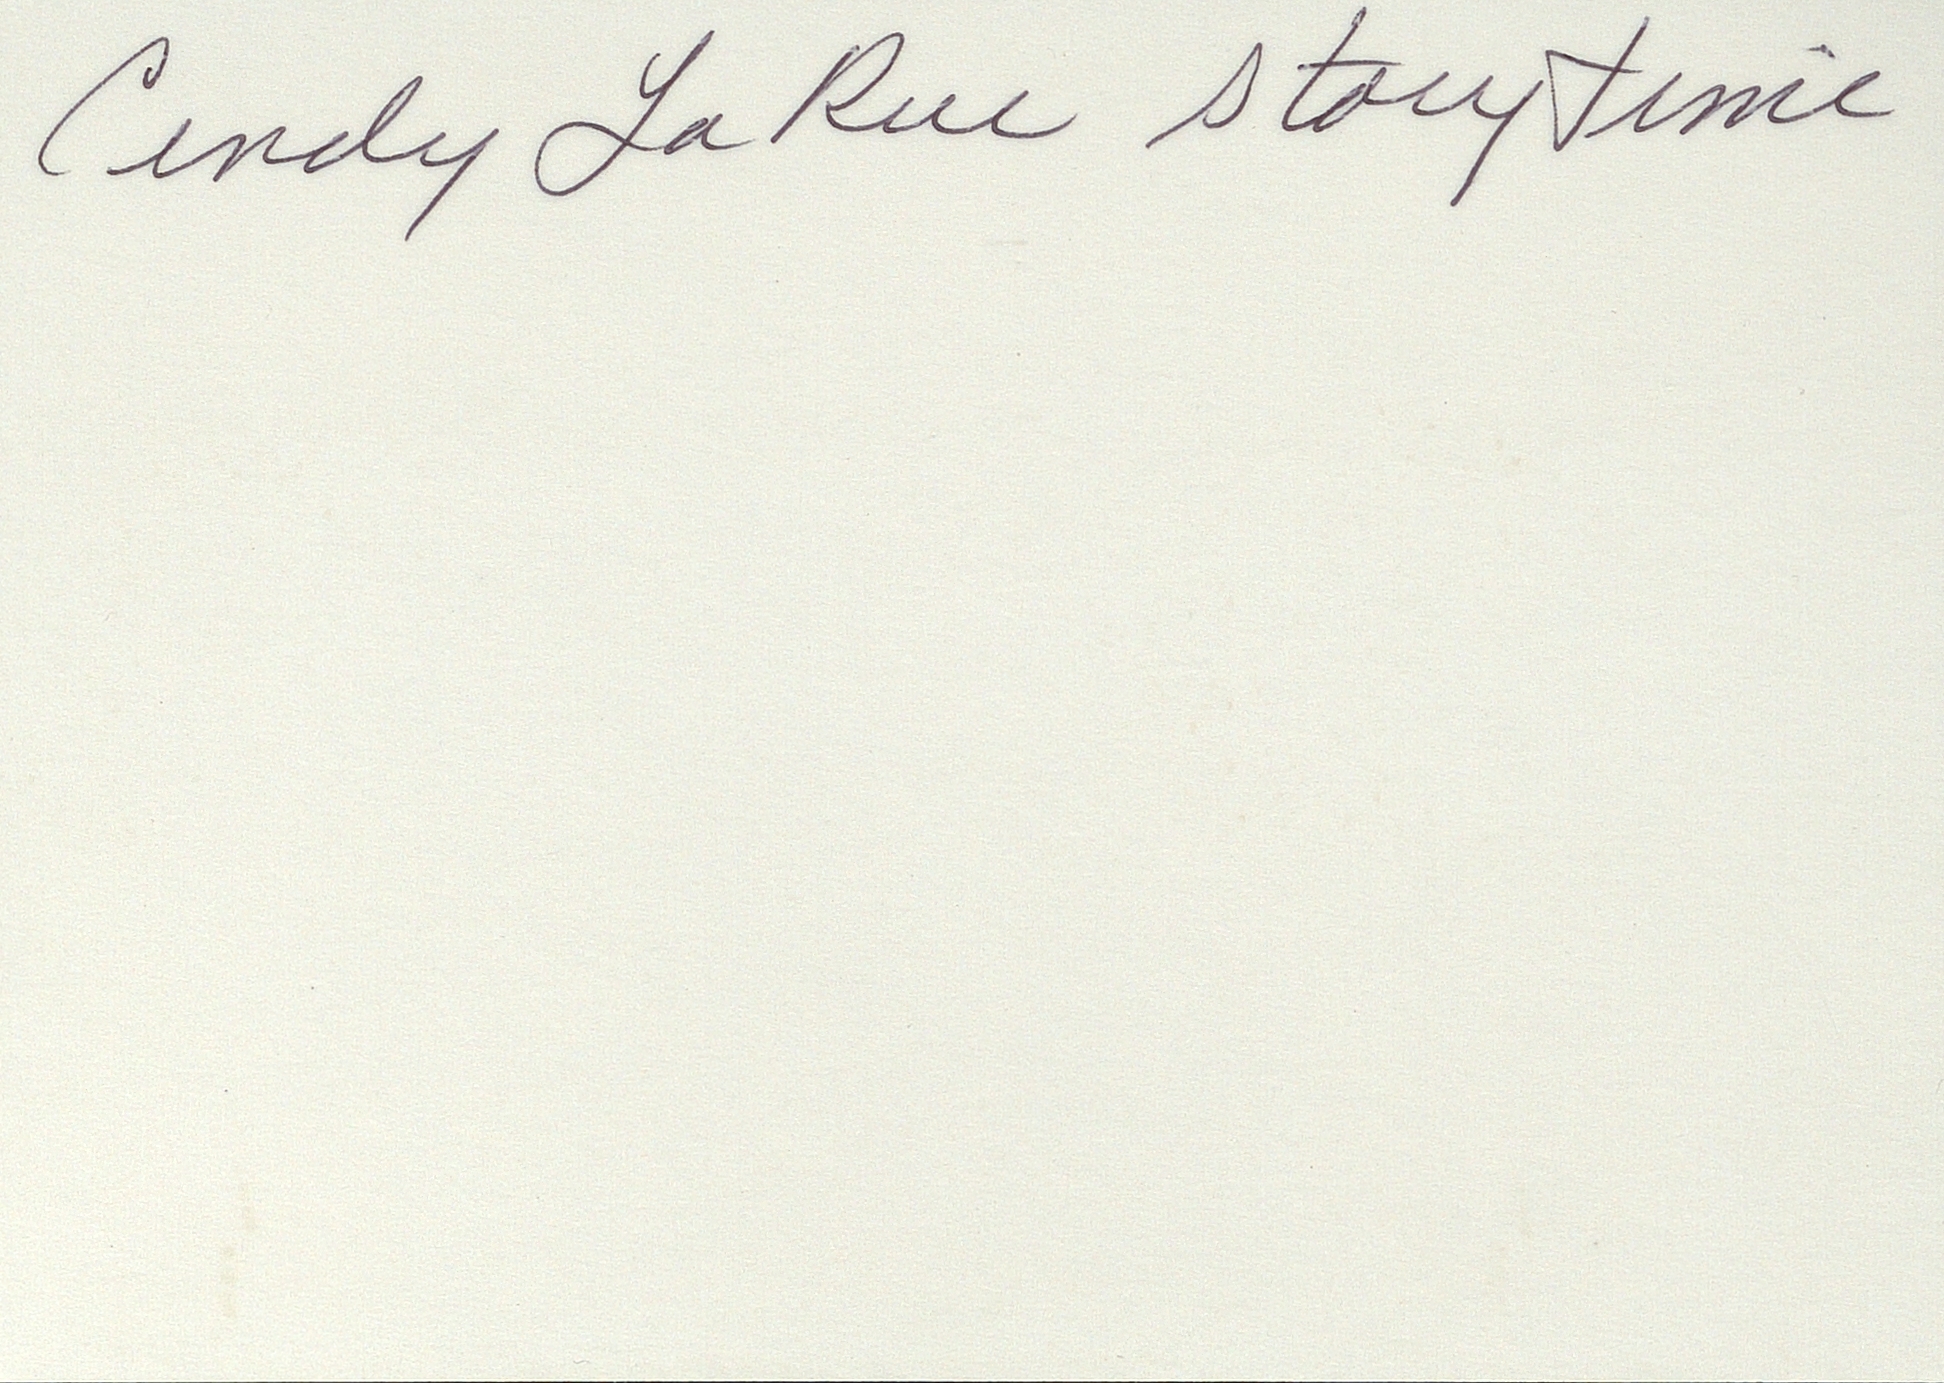 Cindy La Rue storytime